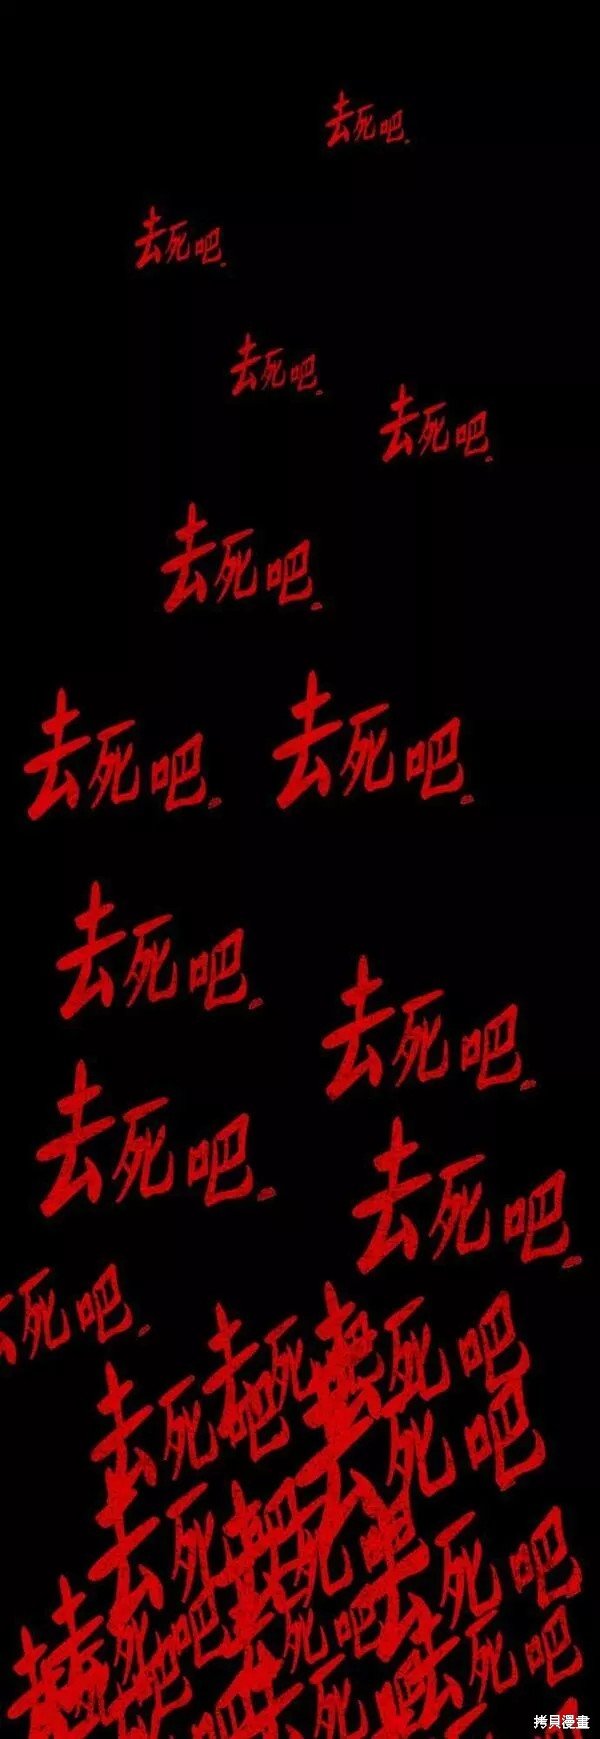 去死吧.
去死吧.
去死吧.
去死吧.
去死吧.
去死吧.
去死吧.
去死吧.
去死吧.
去死吧.
去死吧.
去死吧.
去死吧
去死吧
去死吧
去死吧
去死
死吧
去死吧
死吧
死吧
去死吧
拷貝漫畫